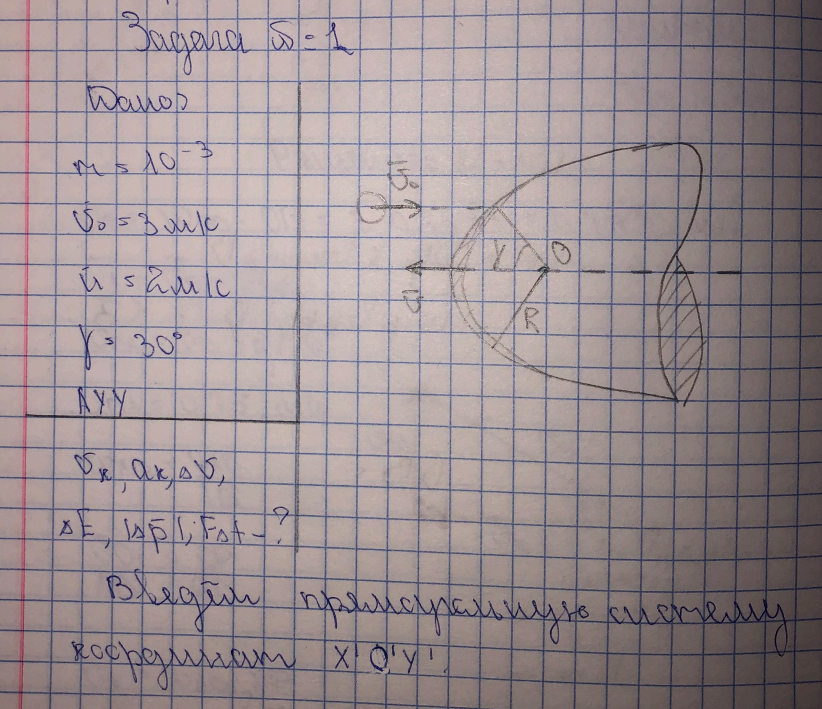 Задача №1
Дано:
m = 10⁻³
v₀ = 3 м/с
u = 2 м/с
γ = 30°
АУУ
vк, αк, Δv,
ΔE, |Δp̄|, FΔt - ?
v̄₀
γ
O
ū
R
Введём прямоугольную систему
координат X'O'Y'.